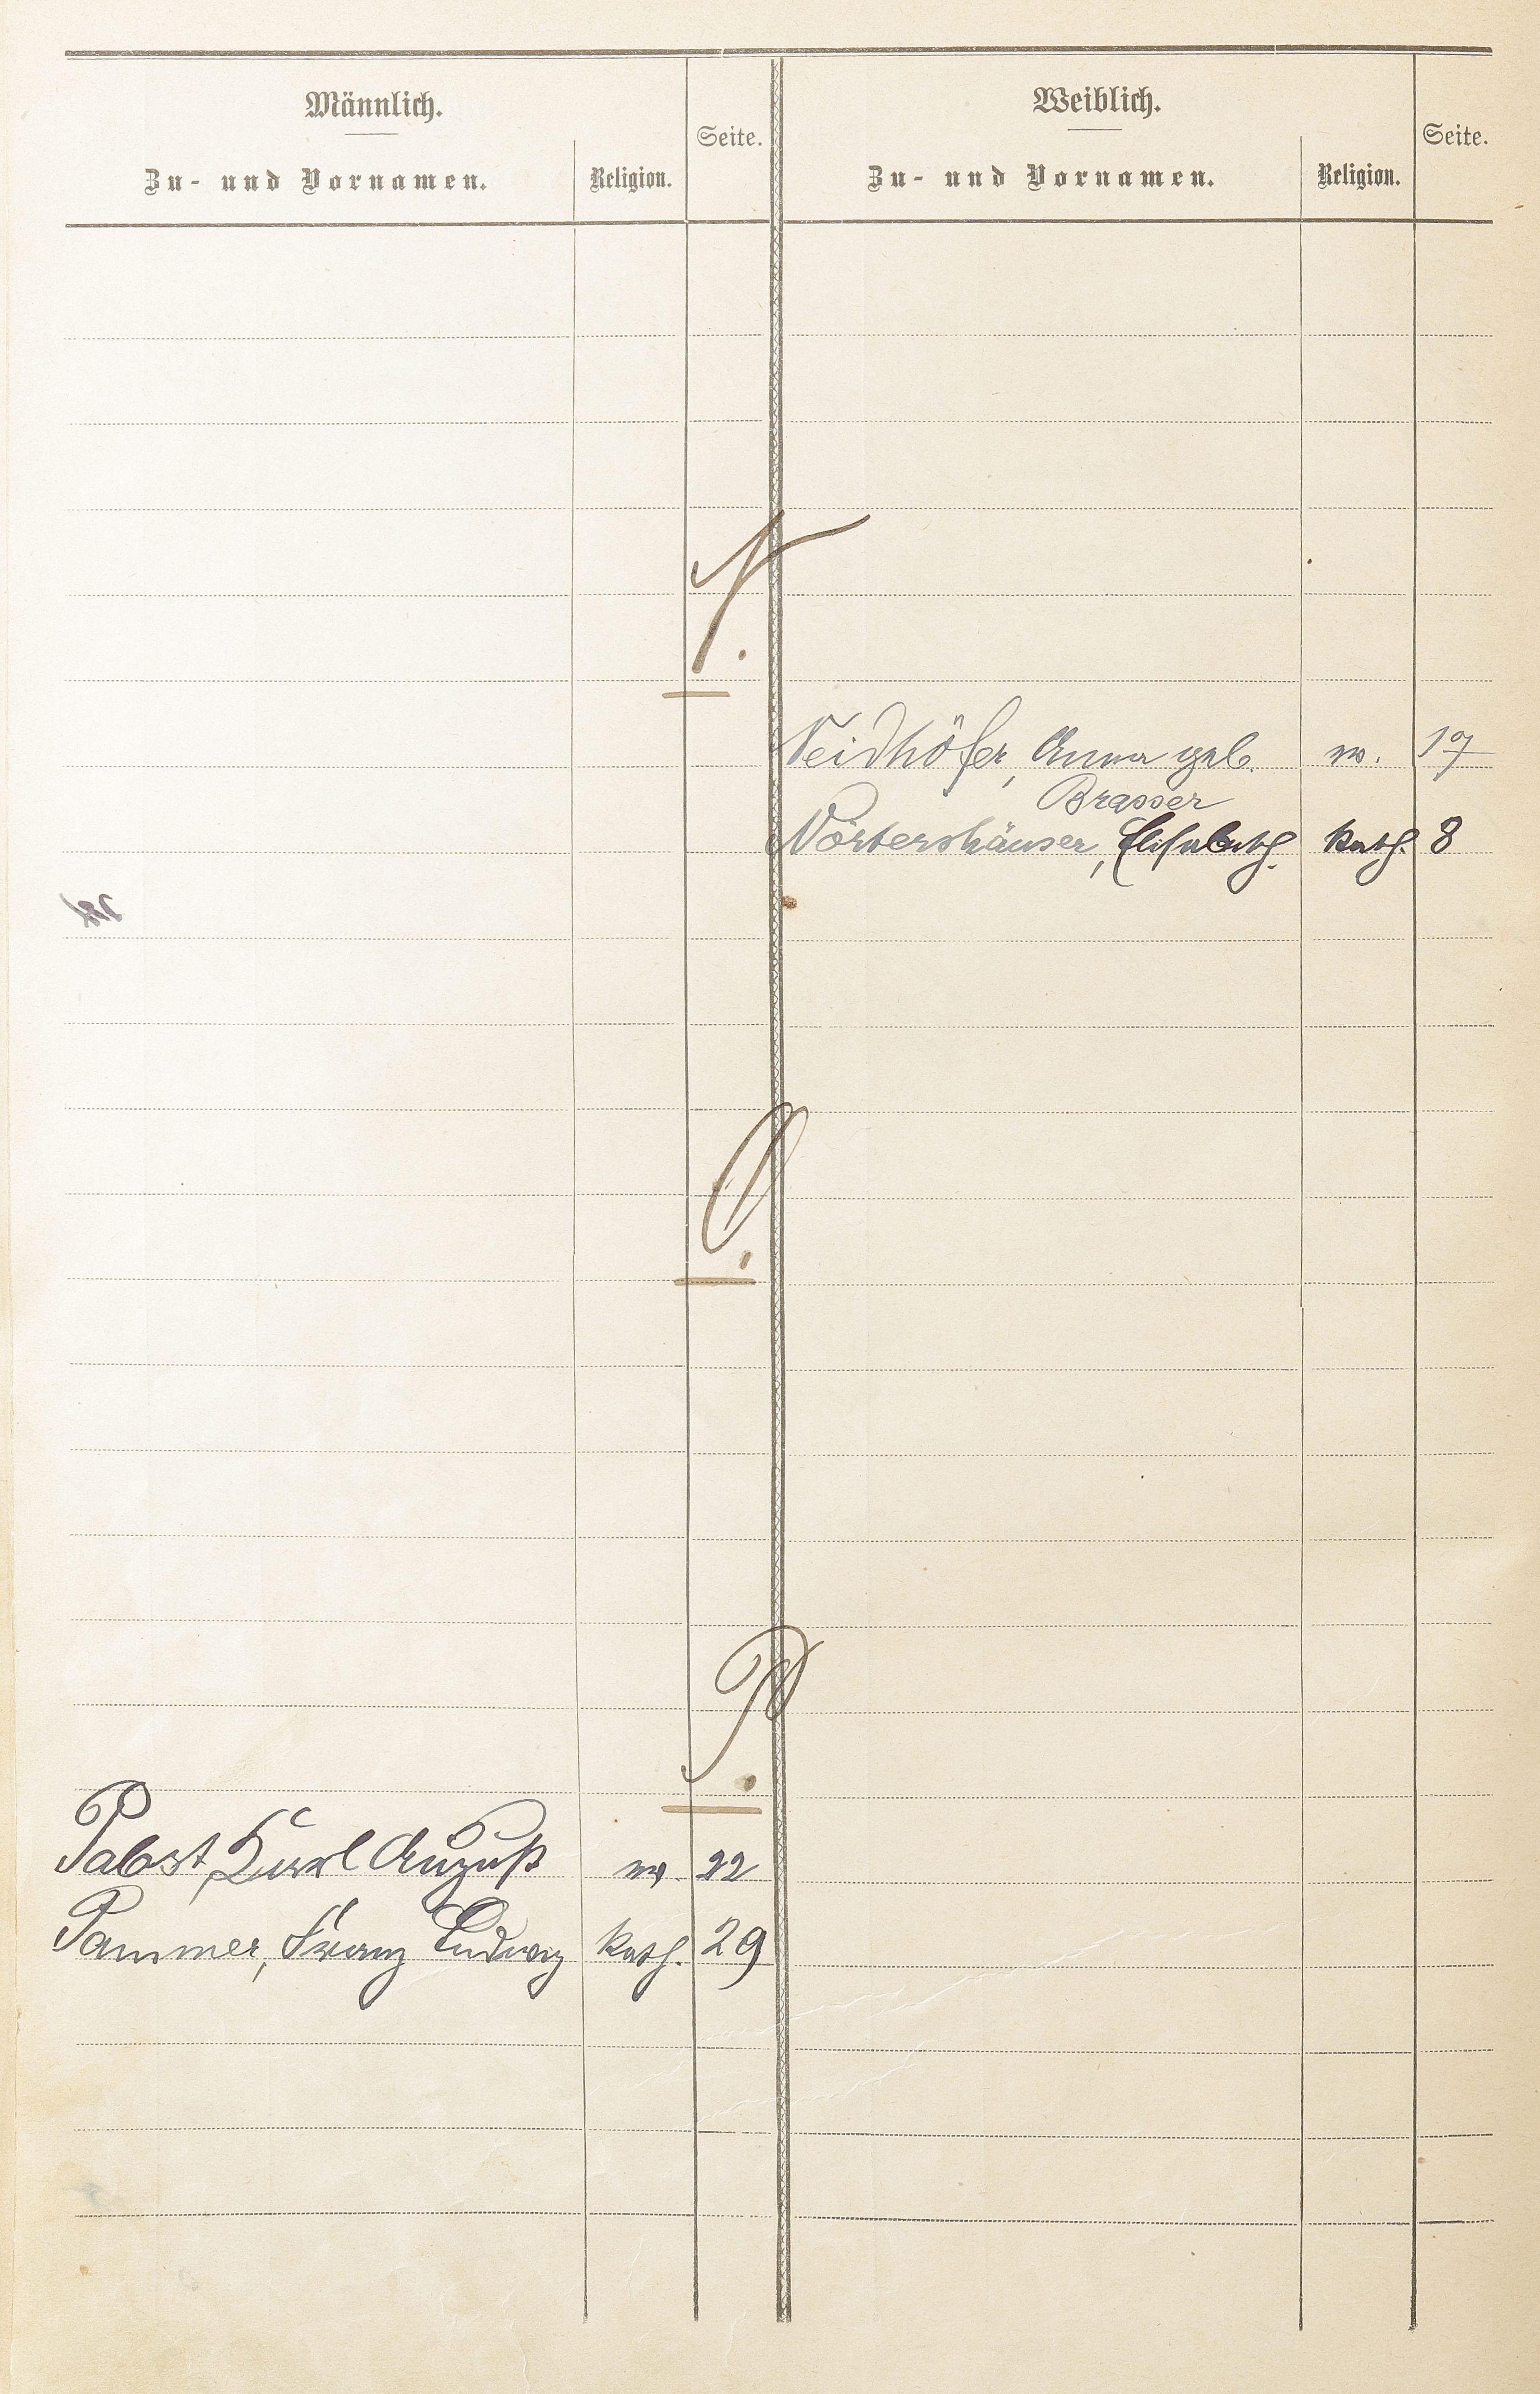 Männlich.
Zu- und Vornamen. Religion. Seite.
Weiblich.
Zu- und Vornamen. Religion. Seite.
N.
Neidhöfer, Anna geb. ev. 17
Brasser
Nörtershäuser, Elisabeth. kath. 8
O.
P.
Pabst, Karl August ev. 22
Pammer, Franz Ludwig kath. 29